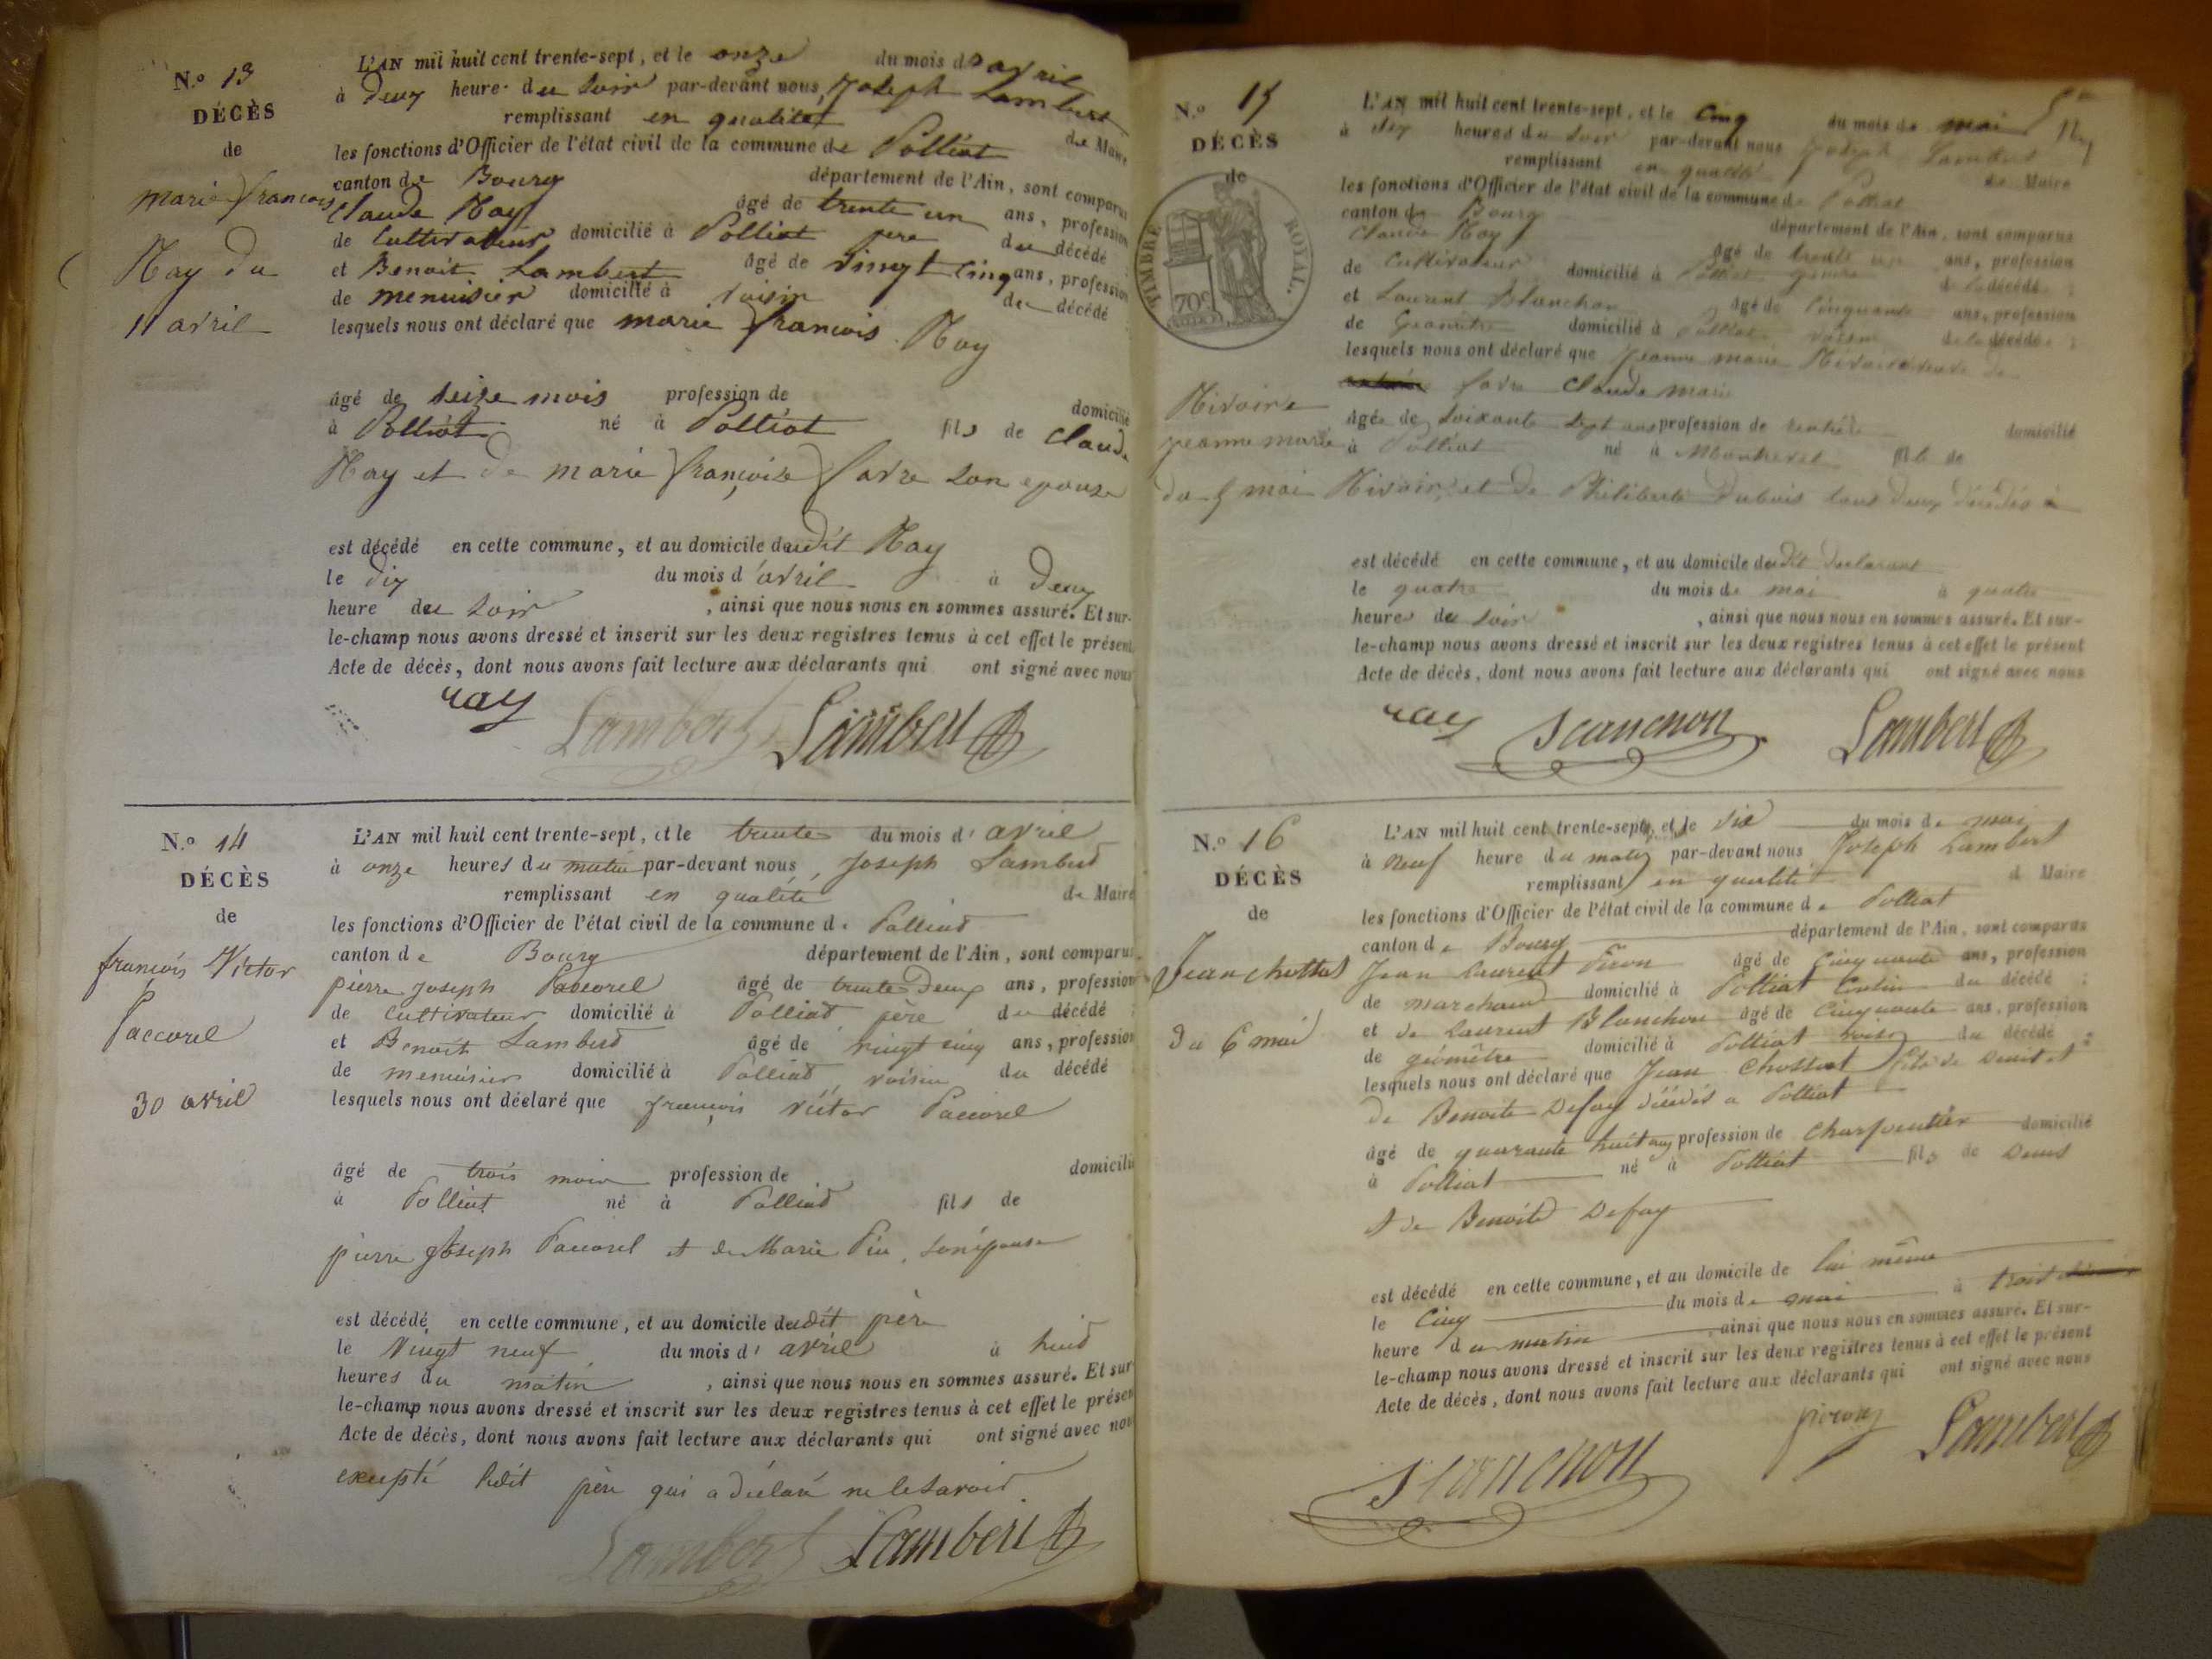 N.º 13
DÉCÈS
de
marie françois
Ray du
11 avril
L'AN mil huit cent trente-sept, et le onze du mois d'avril
à deux heure du soir par-devant nous, Joseph Lambert
remplissant en qualité de Maire
les fonctions d'Officier de l'état civil de la commune de Polliat
canton de Bourg département de l'Ain, sont comparus
Claude Ray âgé de trente un ans, profession
de Cultivateur domicilié à Polliat père du décédé
et Benoit Lambert âgé de vingt cinq ans, profession
de menuisier domicilié à voisin du décédé
lesquels nous ont déclaré que marie francois Ray
âgé de seize mois profession de domicilié
à Polliat né à Polliat fils de Claude
Ray et de marie françoise favre son epouse
est décédé en cette commune, et au domicile dudit Ray
le dix du mois d'avril à deux
heure du soir, ainsi que nous nous en sommes assuré. Et sur-
le-champ nous avons dressé et inscrit sur les deux registres tenus à cet effet le présent
Acte de décès, dont nous avons fait lecture aux déclarants qui ont signé avec nous
ray Lambert Lambert
N.º 14
DÉCÈS
de
françois Victor
Paccorel
30 avril
L'AN mil huit cent trente-sept, et le trente du mois d'avril
à onze heures du matin par-devant nous, Joseph Lambert
remplissant en qualité de Maire
les fonctions d'Officier de l'état civil de la commune de Polliat
canton de Bourg département de l'Ain, sont comparus
pierre joseph Paccorel âgé de trente deux ans, profession
de Cultivateur domicilié à Polliat père du décédé
et Benoit Lambert âgé de vingt cinq ans, profession
de menuisier domicilié à Polliat voisin du décédé
lesquels nous ont déclaré que françois victor Paccorel
âgé de trois mois profession de domicilié
à Polliat né à Polliat fils de
pierre joseph Paccorel et de Marie son épouse
est décédé en cette commune, et au domicile dudit père
le Vingt neuf du mois d'avril à huit
heures du matin, ainsi que nous nous en sommes assuré. Et sur-
le-champ nous avons dressé et inscrit sur les deux registres tenus à cet effet le présent
Acte de décès, dont nous avons fait lecture aux déclarants qui ont signé avec nous
excepté ledit père qui a déclaré ne le savoir
Lambert Lambert
N.º 15
DÉCÈS
de
TIMBRE ROYAL.
70c
Rivoire
jeanne marie
du 5 mai
L'AN mil huit cent trente-sept, et le Cinq du mois de mai
à dix heures du soir par-devant nous joseph Lambert
remplissant en qualité de Maire
les fonctions d'Officier de l'état civil de la commune de Polliat
canton de Bourg département de l'Ain, sont comparus
Claude Ray âgé de trente un ans, profession
de Cultivateur domicilié à Polliat gendre de la décédée ;
et Laurant Blanchon âgé de Cinquante ans, profession
de Géomètre domicilié à Polliat voisin de la décédée ;
lesquels nous ont déclaré que jeanne marie Rivoire veuve de
favre Claude marie
âgée de soixante sept ans profession de rentière domicilié
à Polliat né à Montrevel fille de
Rivoire et de Philiberte Dubois tous deux décédés à
est décédé en cette commune, et au domicile dudit déclarant
le quatre du mois de mai à quatre
heures du soir, ainsi que nous nous en sommes assuré. Et sur-
le-champ nous avons dressé et inscrit sur les deux registres tenus à cet effet le présent
Acte de décès, dont nous avons fait lecture aux déclarants qui ont signé avec nous
ray Blanchon Lambert
N.º 16
DÉCÈS
de
Jean Chossat
Du 6 mai
L'AN mil huit cent trente-sept, et le six du mois de mai
à neuf heure du matin par-devant nous Joseph Lambert
remplissant en qualité d Maire
les fonctions d'Officier de l'état civil de la commune de Polliat
canton de Bourg département de l'Ain, sont comparus
Jean Laurent Piron âgé de Cinquante ans, profession
de marchand domicilié à Polliat Cousin du décédé ;
et de Laurent Blanchon âgé de Cinquante ans, profession
de géomètre domicilié à Polliat voisin du décédé ;
lesquels nous ont déclaré que Jean Chossat fils de Denis et
de Benoite Defay décédés a Polliat
âgé de quarante huit ans profession de Charpentier domicilié
à Polliat né à Polliat fils de Denis
et de Benoite Defay
est décédé en cette commune, et au domicile de lui même
le Cinq du mois de mai à trois
heure du matin, ainsi que nous nous en sommes assuré. Et sur-
le-champ nous avons dressé et inscrit sur les deux registres tenus à cet effet le présent
Acte de décès, dont nous avons fait lecture aux déclarants qui ont signé avec nous
Blanchon piron Lambert